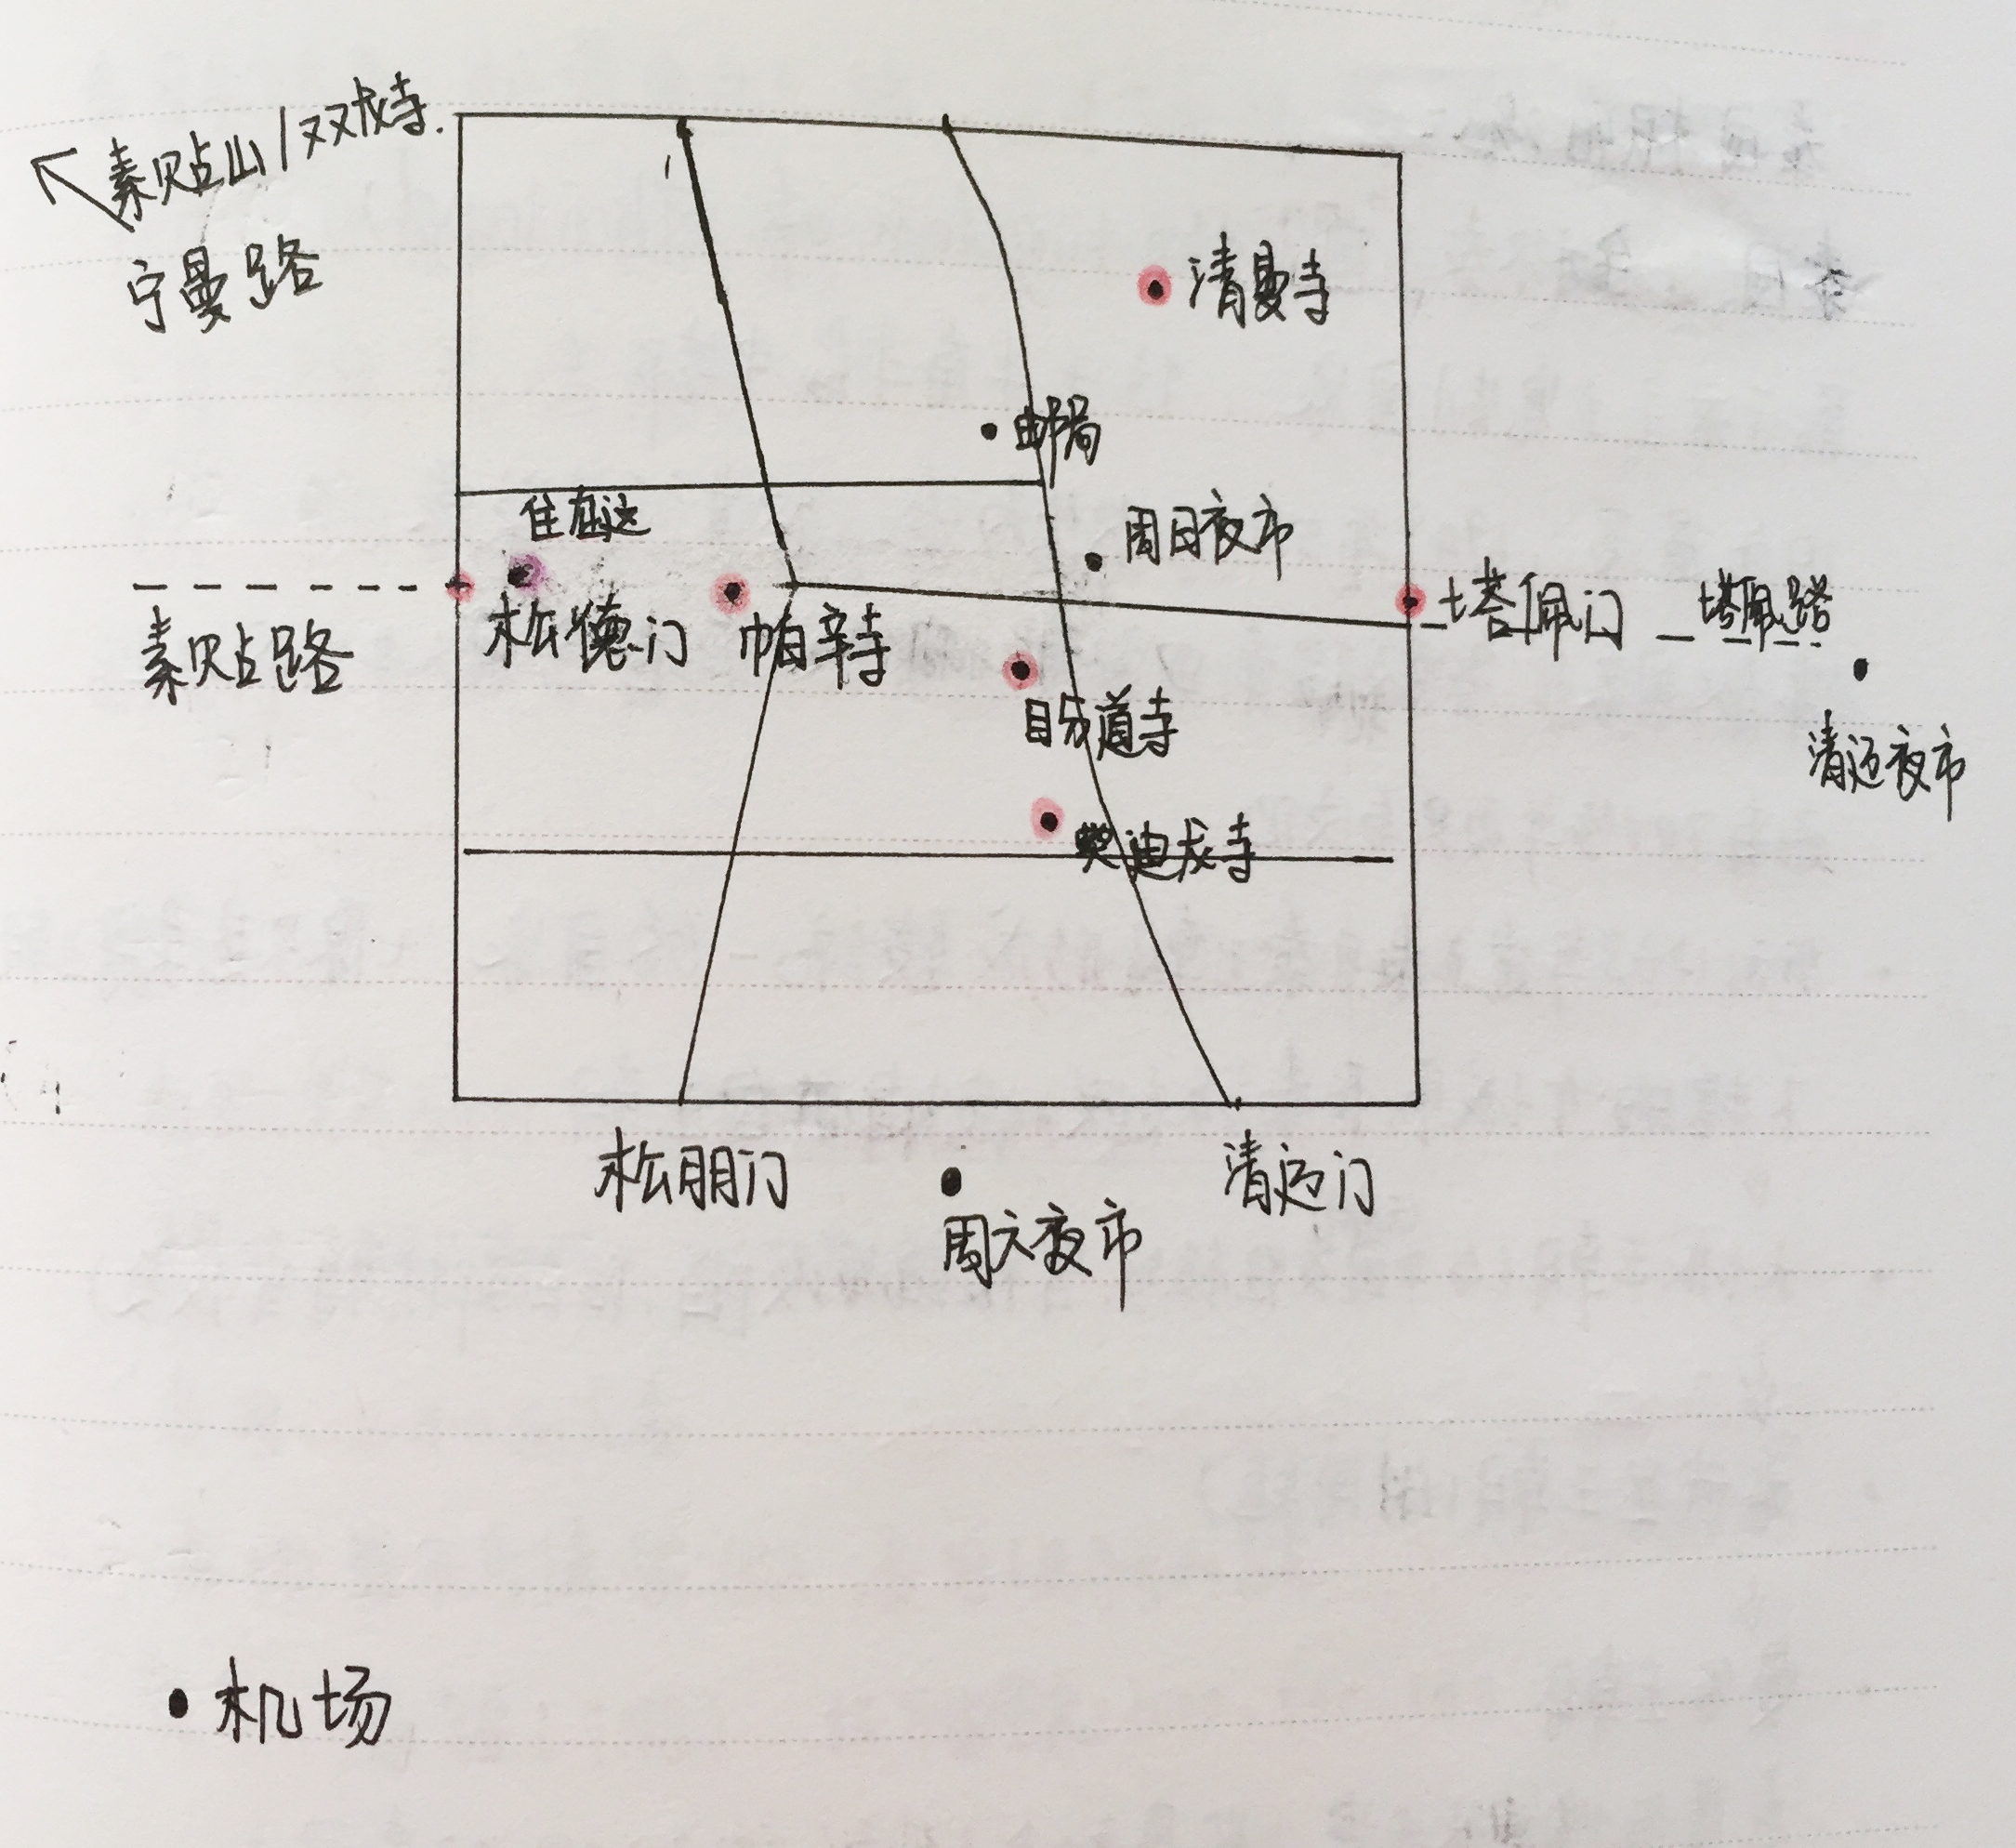 素贴山/双龙寺.
宁曼路
清曼寺
邮局
住在这
周日夜市
素贴路
松德门
帕辛寺
塔佩门
塔佩路
盼道寺
清迈夜市
契迪龙寺
松朋门
清迈门
周六夜市
机场